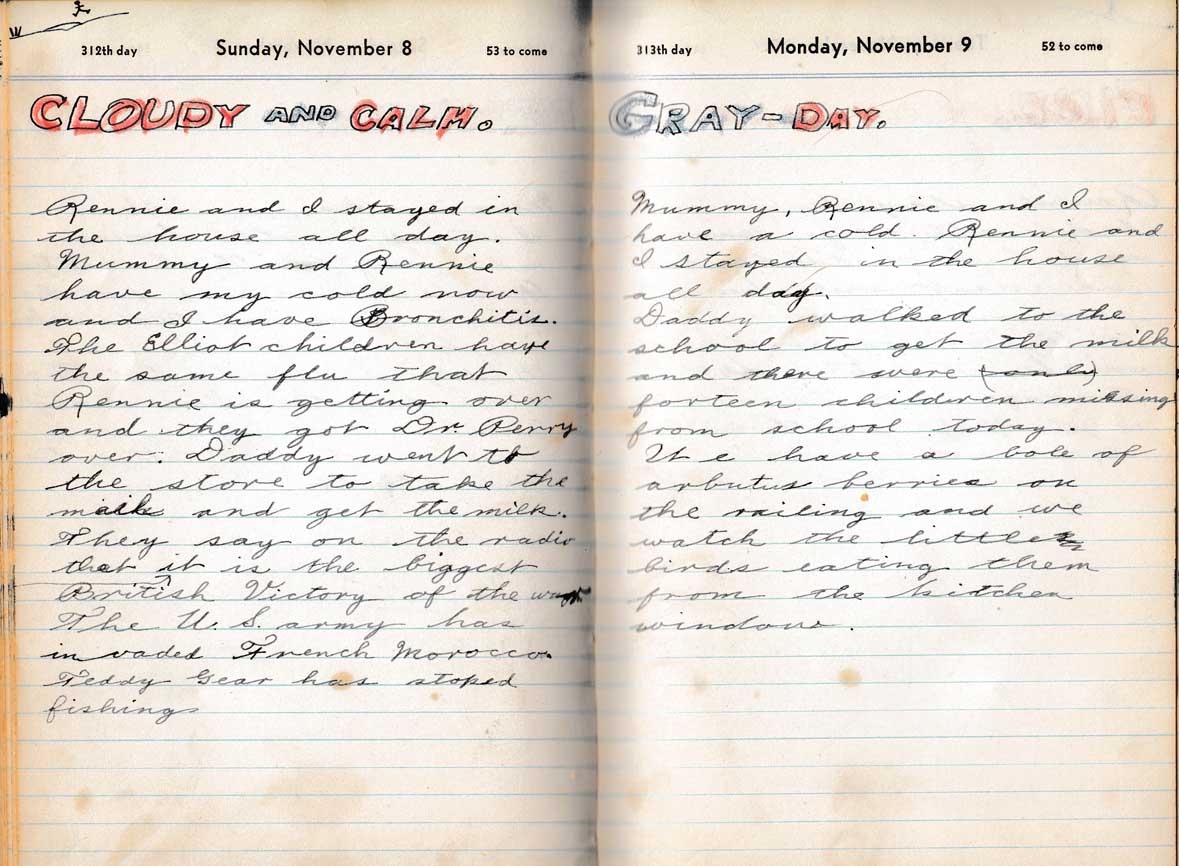 312th day Sunday, November 8 53 to come
CLOUDY AND CALM.
Rennie and I stayed in
the house all day.
Mummy and Rennie
have my cold now
and I have Bronchitis.
The Elliot children have
the same flu that
Rennie is getting over
and they got Dr. Perry
over. Daddy went to
the store to take the
mail and get the milk.
They say on the radio
that it is the biggest
British Victory of the war
The U. S. army has
invaded French Morocco.
Teddy Gear has stoped
fishing
313th day Monday, November 9 52 to come
GRAY-DAY.
Mummy, Rennie and I
have a cold. Rennie and
I stayed in the house
all day.
Daddy walked to the
school to get the milk
and there were (only)
forteen children missing
from school today.
We have a bole of
arbutus berries on
the railing and we
watch the little
birds eating them
from the kitchen
window.